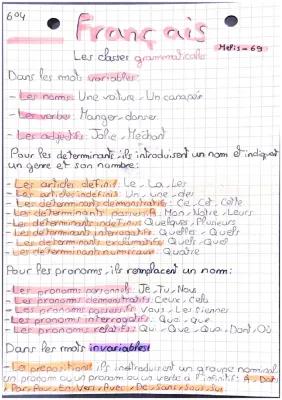 604
Français
Melis-69
Les classes grammaticale
Dans les mots variables:
- Les noms: Une voiture - Un canapé
- Les verbes: Manger - danser
- Les adjectifs: Jolie - Méchant
Pour les déterminants, ils introduisent un nom et indiquent
un genre et son nombre:
- Les articles définit: Le - La - Les
- Les articles indéfinis: Un - une - des
- Les déterminants démonstratifs: Ce - Cet - Cette
- Les déterminants possessifs: Mon - Notre - Leurs
- Les déterminants indéfinis: Quelques, Plusieurs
- Les déterminants interrogatifs: Quelle - Quels
- Les déterminants exclamatifs: Quels - Quel
- Les déterminants numéraux: Quatre
Pour les pronoms, ils remplacent un nom:
- Les pronoms personnel: Je, Tu, Nous
- Les pronoms démonstratifs: Ceux, Cela
- Les pronoms possessifs: - Les siens
- Les pronoms interrogatifs: Que - qui
- Les pronoms relatifs: Qui - Que - Quoi, Dont, Où
Dans les mots invariables!
- La préposition: ils introduisent un groupe nominal
un pronom ou un pronom ou un verbe à l'infinitif: A, Dans
, Par, Pour, En, Vers, Avec, De, Sans, Sous, Sur